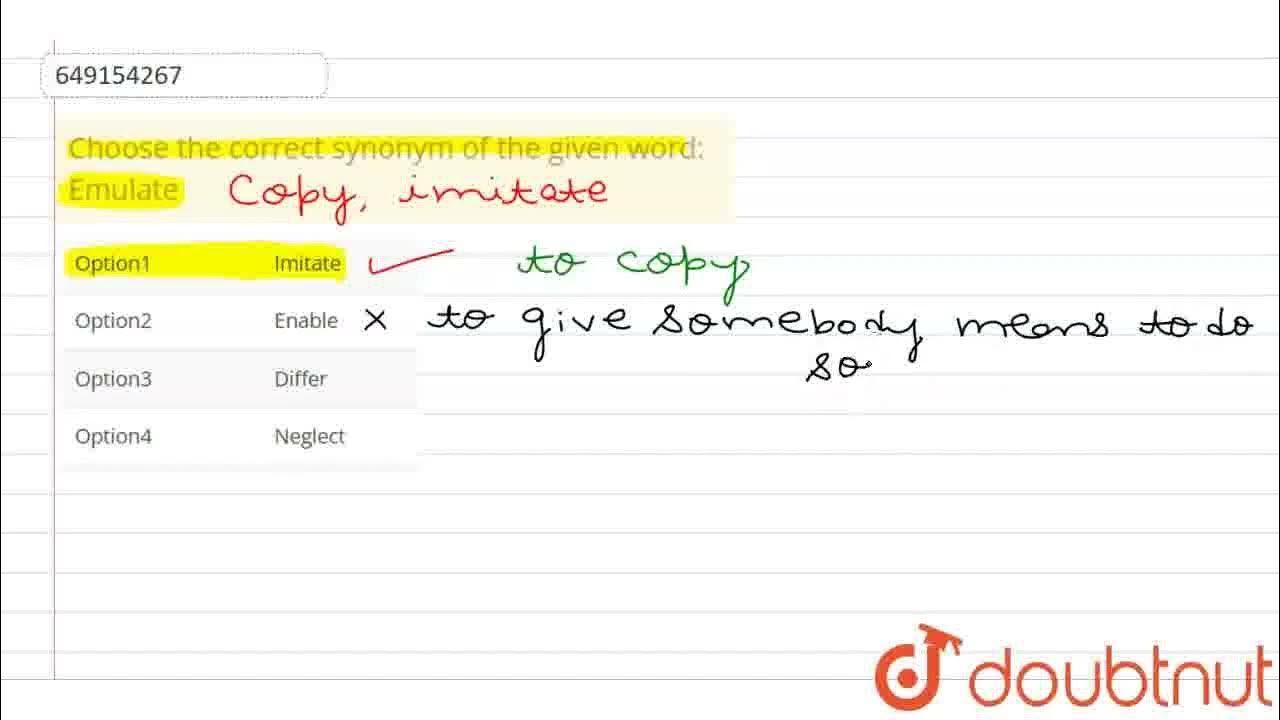 649154267
Choose the correct synonym of the given word:
Emulate Copy, imitate
Option1 Imitate ✓ to copy
Option2 Enable × to give somebody means to do
so
Option3 Differ
Option4 Neglect
doubtnut